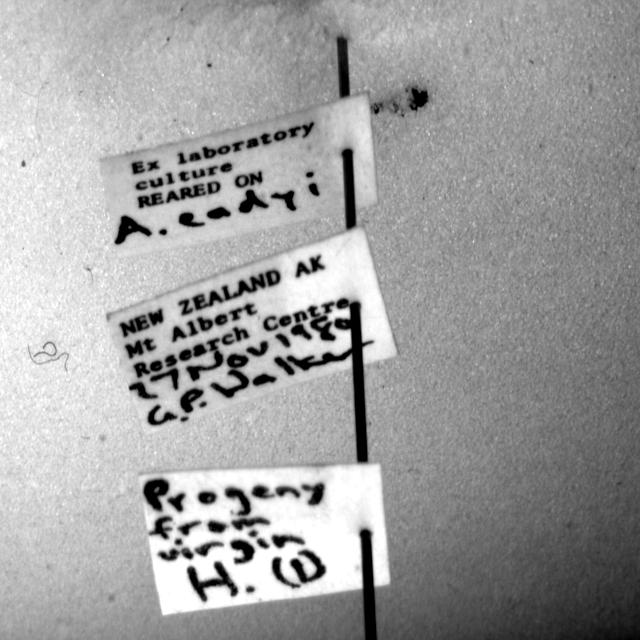 Ex laboratory
culture
REARED ON
A. eadyi
NEW ZEALAND AK
Mt Albert
Research Centre
27 Nov 1980
G.P. Walker
Progeny
from
virgin
H. (1)